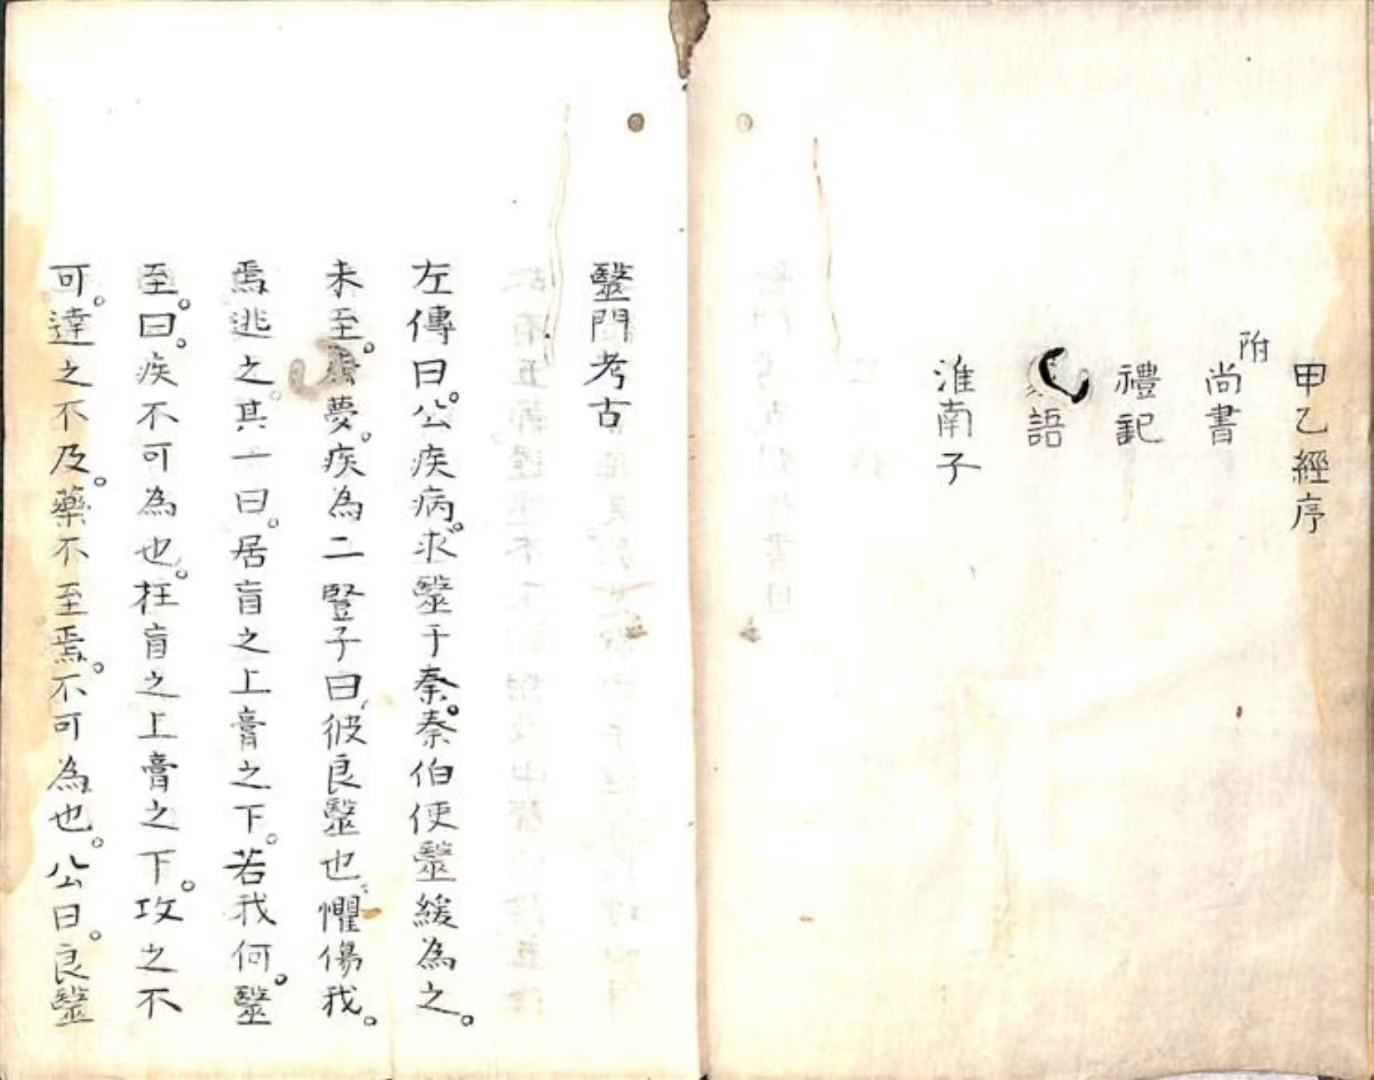 甲乙經序
附
尚書
禮記
語
淮南子
毉門考古
左傳曰。公疾病。求毉于秦。秦伯使毉緩為之。
未至。夢。疾為二豎子曰、彼良毉也、懼傷我。
焉逃之。其一曰。居肓之上膏之下。若我何。毉
至。曰。疾不可為也。在肓之上膏之下。攻之不
可。達之不及。藥不至焉。不可為也。公曰。良毉